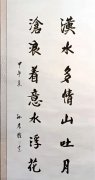 漢水多情山吐月
滄浪着意水浮花
甲午夏